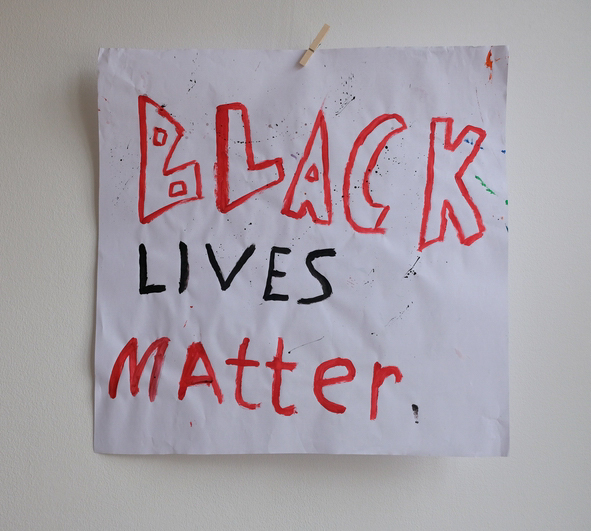 BLACK
LIVES
MAtter,